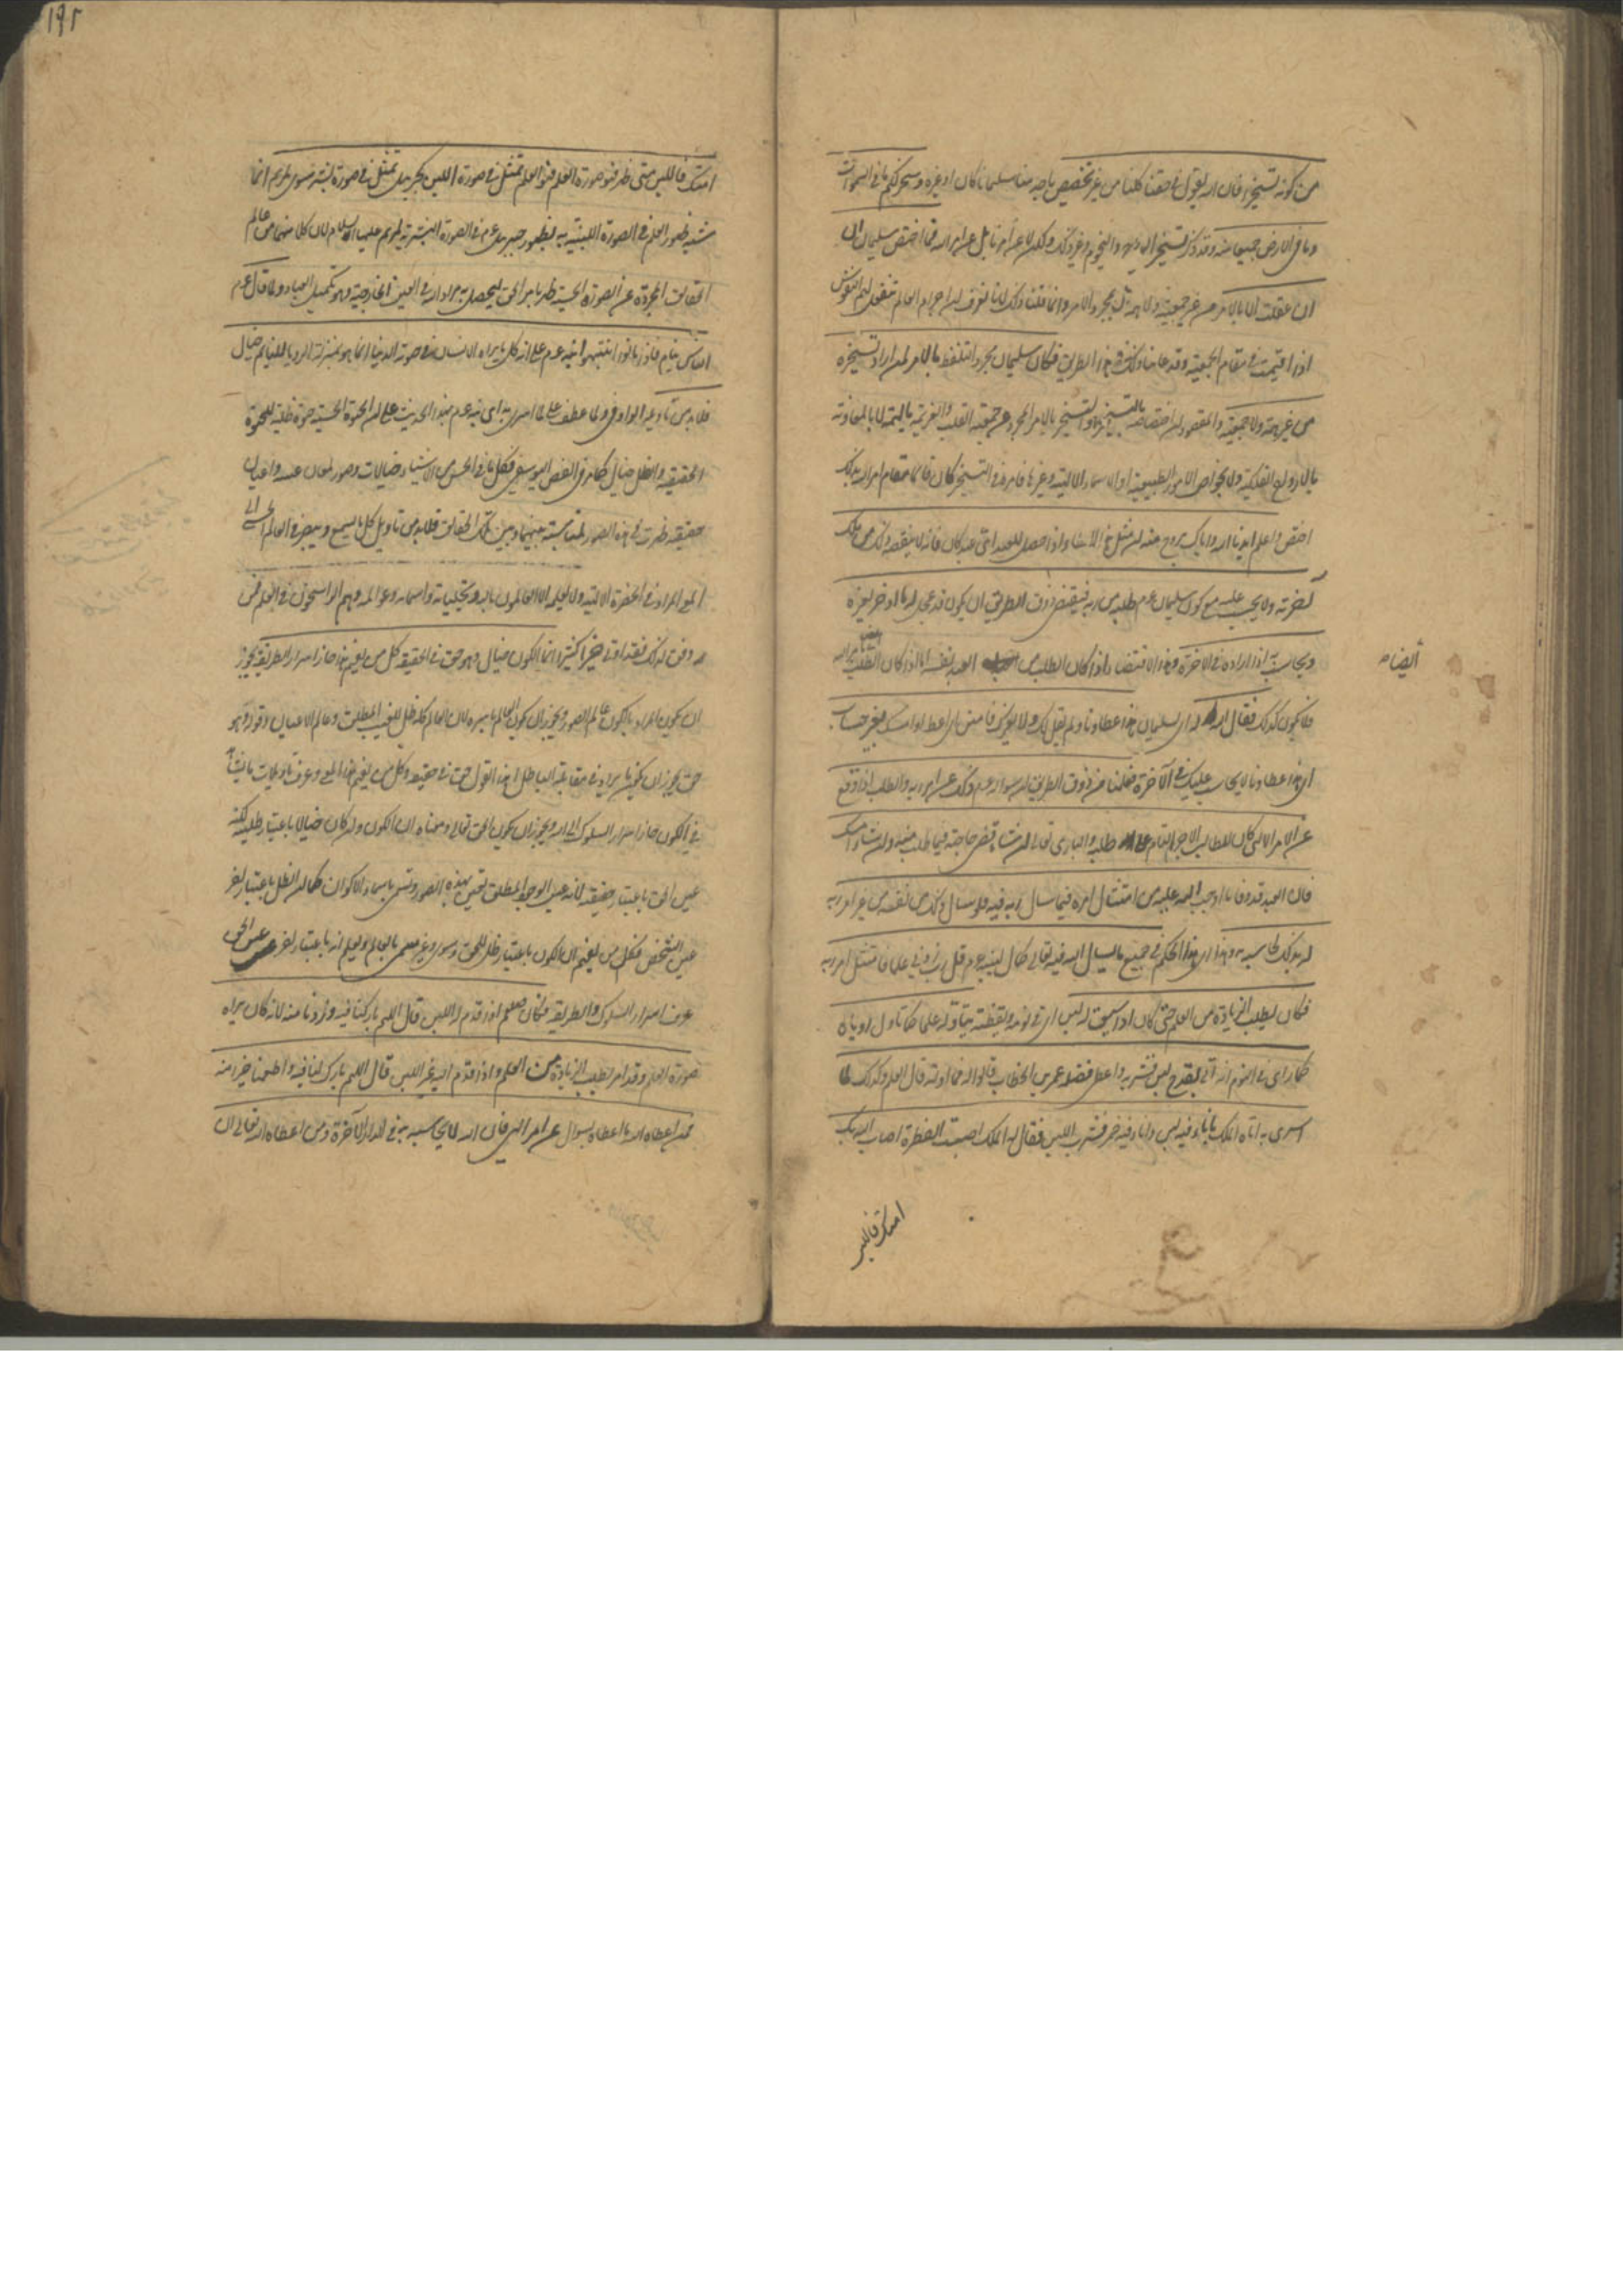 من كونه تسخيرا فان الله يقول في حقنا كلنا من غير تخصيص باحد منا سليمانا كان او غيره وسخر لكم ما في السموات
وما في الارض جميعا منه وقد ذكر تسخير الرياح والنجوم وغير ذلك ولكن لا عن امرنا بل عن امر الله فما اختص سليمان ان
عقلت الا بالامر من غير جمعية ولا همة بل بمجرد الامر وانما قلنا ذلك لانا نعرف ان اجرام العالم تنفعل لهمم النفوس
اذا اقيمت في مقام الجمعية وقد عاينا ذلك في هذا الطريق فكان سليمان مجرد التلفظ بالامر لمن اراد تسخيره
من غير همة ولا جمعية والمقصود ان اختصاصه بالتسخير هو التسخير بالامر المجرد عن جمعية القلب والعزيمة بالهمة لا بالمعاونة
بالارواح الفلكية ولا بخواص الامور الطبيعية او الاسماء الالهية وغيرها فامره في التسخير كان قائما مقام امر الله بذلك
اختص واعلم ايدنا الله واياك بروح منه ان مثل هذا العطاء اذا حصل للعبد اي عبد كان فانه لا ينقصه ذلك من ملك
آخرته ولا يحسب عليه مع كون سليمان عم طلبه من ربه فيقتضي ذوق الطريق ان يكون قد عجل له ما ادخر لغيره
ويحاسب به اذا اراده في الآخرة وهذا الاقتضاء اذا كان الطلب من العبد بنفسه اما اذا كان الطلب
ايضا
فلا يكون كذلك فقال الله له اي لسليمان هذا عطاؤنا ولم يقل لك ولا لغيرك فامنن اي اعط او امسك بغير حساب
اي هذا عطاؤنا لا يحاسب عليك في الآخرة فعلمنا من ذوق الطريق ان سؤاله عم ذلك عن امر ربه والطلب اذا وقع
عن الامر الالهي كان الطالب له الاجر التام على طلبه والباري تعالى ان شاء قضى حاجته فيما طلب منه وان شاء امسك
فان العبد قد وفى ما اوجب الله عليه من امتثال امره فيما سأل ربه فيه فلو سأل ذلك من نفسه من غير امر ربه
له بذلك لحاسبه به وهذا اي هذا الحكم في جميع ما يسأل الله فيه تعالى كما قال لنبيه عم قل رب زدني علما فامتثل امر ربه
فكان يطلب الزيادة من العلم حتى كان اذا سيق له لبن اي في نومه ويقظته يتأوله علما كما تأول رؤياه
لما رأى في النوم انه اتي بقدح لبن فشربه واعطى فضله عمر بن الخطاب قالوا له فما اولته قال العلم وكذلك لما
اسري به اتاه الملك باناء فيه لبن واناء فيه خمر فشرب اللبن فقال له الملك اصبت الفطرة اصاب الله بك
امتك فاللبن
١٩٢
امتك فاللبن متى ظهر فهو صورة العلم فهو العلم تمثل في صورة اللبن كجبريل تمثل في صورة بشر سوي لمريم انما
شبه ظهور العلم في الصورة اللبنية بظهور جبريل عم في الصورة البشرية لمريم عليها السلام لان كلا منهما من عالم
الحقائق المجردة عن الصورة الحسية ظهر بامر الحق ليحصل به مراد الله في العين الخارجية وهو تكميل العباد ولما قال عم
الناس نيام فاذا ماتوا انتبهوا نبه عم على انه كل ما يراه الانسان في حيوته الدنيا انما هو بمنزلة الرؤيا للنائم خيال
فلا بد من تأويله الواو في ولما عطف على لما اسري به اي نبه عم بهذا الحديث على ان الحيوة الحسية حيوة ظلية للحيوة
الحقيقية والظل خيال كما مر في الفص اليوسفي فكل ما في الحس من الاشياء خيالات وصور لمعان عينية واعيان
حقيقية ظهرت في هذه الصور لمناسبة بينها وبين تلك الحقائق فلا بد من تأويل كل ما يسمع ويبصر في العالم الحسي الى
المعنى المراد في الحضرة الالهية ولا يعلمه الا العالمون بالله وتجلياته واسمائه وعوالمه وهم الراسخون في العلم فمن
وفق لذلك فقد اوتي خيرا كثيرا انما الكون خيال وهو حق في الحقيقة كل من يفهم هذا حاز اسرار الطريقة يجوز
ان يكون المراد بالكون عالم الصور ويجوز ان يكون العالم باسره لان العالم كله ظل للغيب المطلق وعالم الاعيان وقوله وهو
حق يجوز ان يكون ما يراد في مقابلة الباطل اي هذا القول حق في حقيقته وكل من يفهم هذا المعنى وعرف تأويلات ما يشاء
في الكون حاز اسرار السلوك الى الله ويجوز ان يكون الحق تعالى ومعناه ان الكون وان كان خيالا باعتبار ظليته لكنه
عين الحق باعتبار حقيقته لانه عين الوجود المطلق تعين بهذه الصور وتسمى باسماء الاكوان كما ان الظل باعتبار آخر
عين الشخص فكل من يفهم ان الكون باعتبار ظل للحق وسوى وغير مسمى بالعالم ويعلم انه باعتبار آخر عين الحق
عرف اسرار السلوك والطريقة فكان صلعم اذا قدم له اللبن قال اللهم بارك لنا فيه وزدنا منه لانه كان يراه
صورة العلم وقد امر بطلب الزيادة من العلم واذا قدم اليه غير اللبن قال اللهم بارك لنا فيه واطعمنا خيرا منه
فمن اعطاه الله ما اعطاه بسؤال عن امر الهي فان الله لا يحاسبه به في الدار الآخرة ومن اعطاه الله تعالى ان